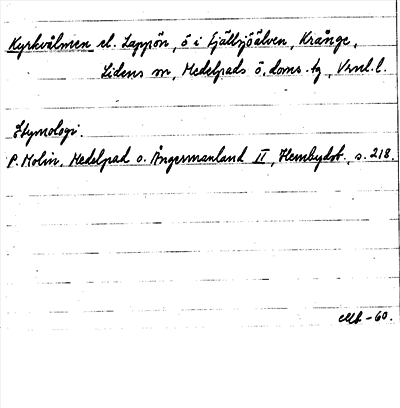 Kyrkvålmen el. Lappön, ö i Fjällsjöälven, Krånge,
Lidens sn, Medelpads ö. doms. tg, Vrnl. l.
Etymologi.
P. Molin, Medelpad o. Ångermanland II, Hembydsb., s. 218.
-60.